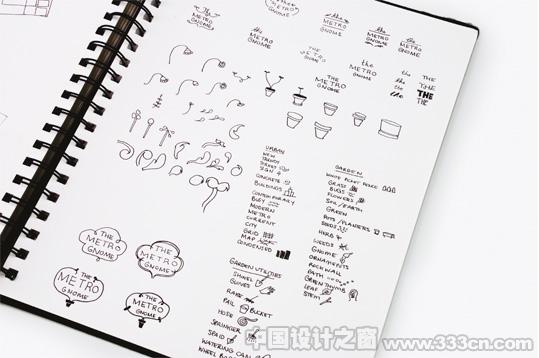 the
METRO
GNOME
the
METRO
GNOME
the
METRO
GNOME
the
METRO
GNOME
the
METRO
GNOME
THE
METRO
GNOME
the
METRO
GNOME
THE
METRO
GNOME
the THE
the THE
the THE
the THE
URBAN
NEW
TRENDY
STREET
SIGN
CONCRETE
BUILDINGS
CONTEMPORARY
BUSY
MODERN
METRO
CURRENT
CITY
GRID
MAP
CONDENSED
GARDEN
WHITE PICKET FENCE
GRASS
BUGS
FLOWERS
SOIL/EARTH
GREEN
POTS/PLANTERS
SEEDS
HERB
WEEDS
GNOME
ORNAMENTS
ROCKWALL
PATH
GREEN THUMB
LEAF
STEM
THE
METRO
GNOME
THE
METRO
GNOME
THE
METRO
GNOME
THE
METRO
GNOME
GARDEN UTILITIES
SHOVEL
GLOVES
RAKE
PAIL BUCKET
HOSE
SPRINGER
SPAID
WATERING CAN
WHEEL
中国设计之窗
www.333cn.com